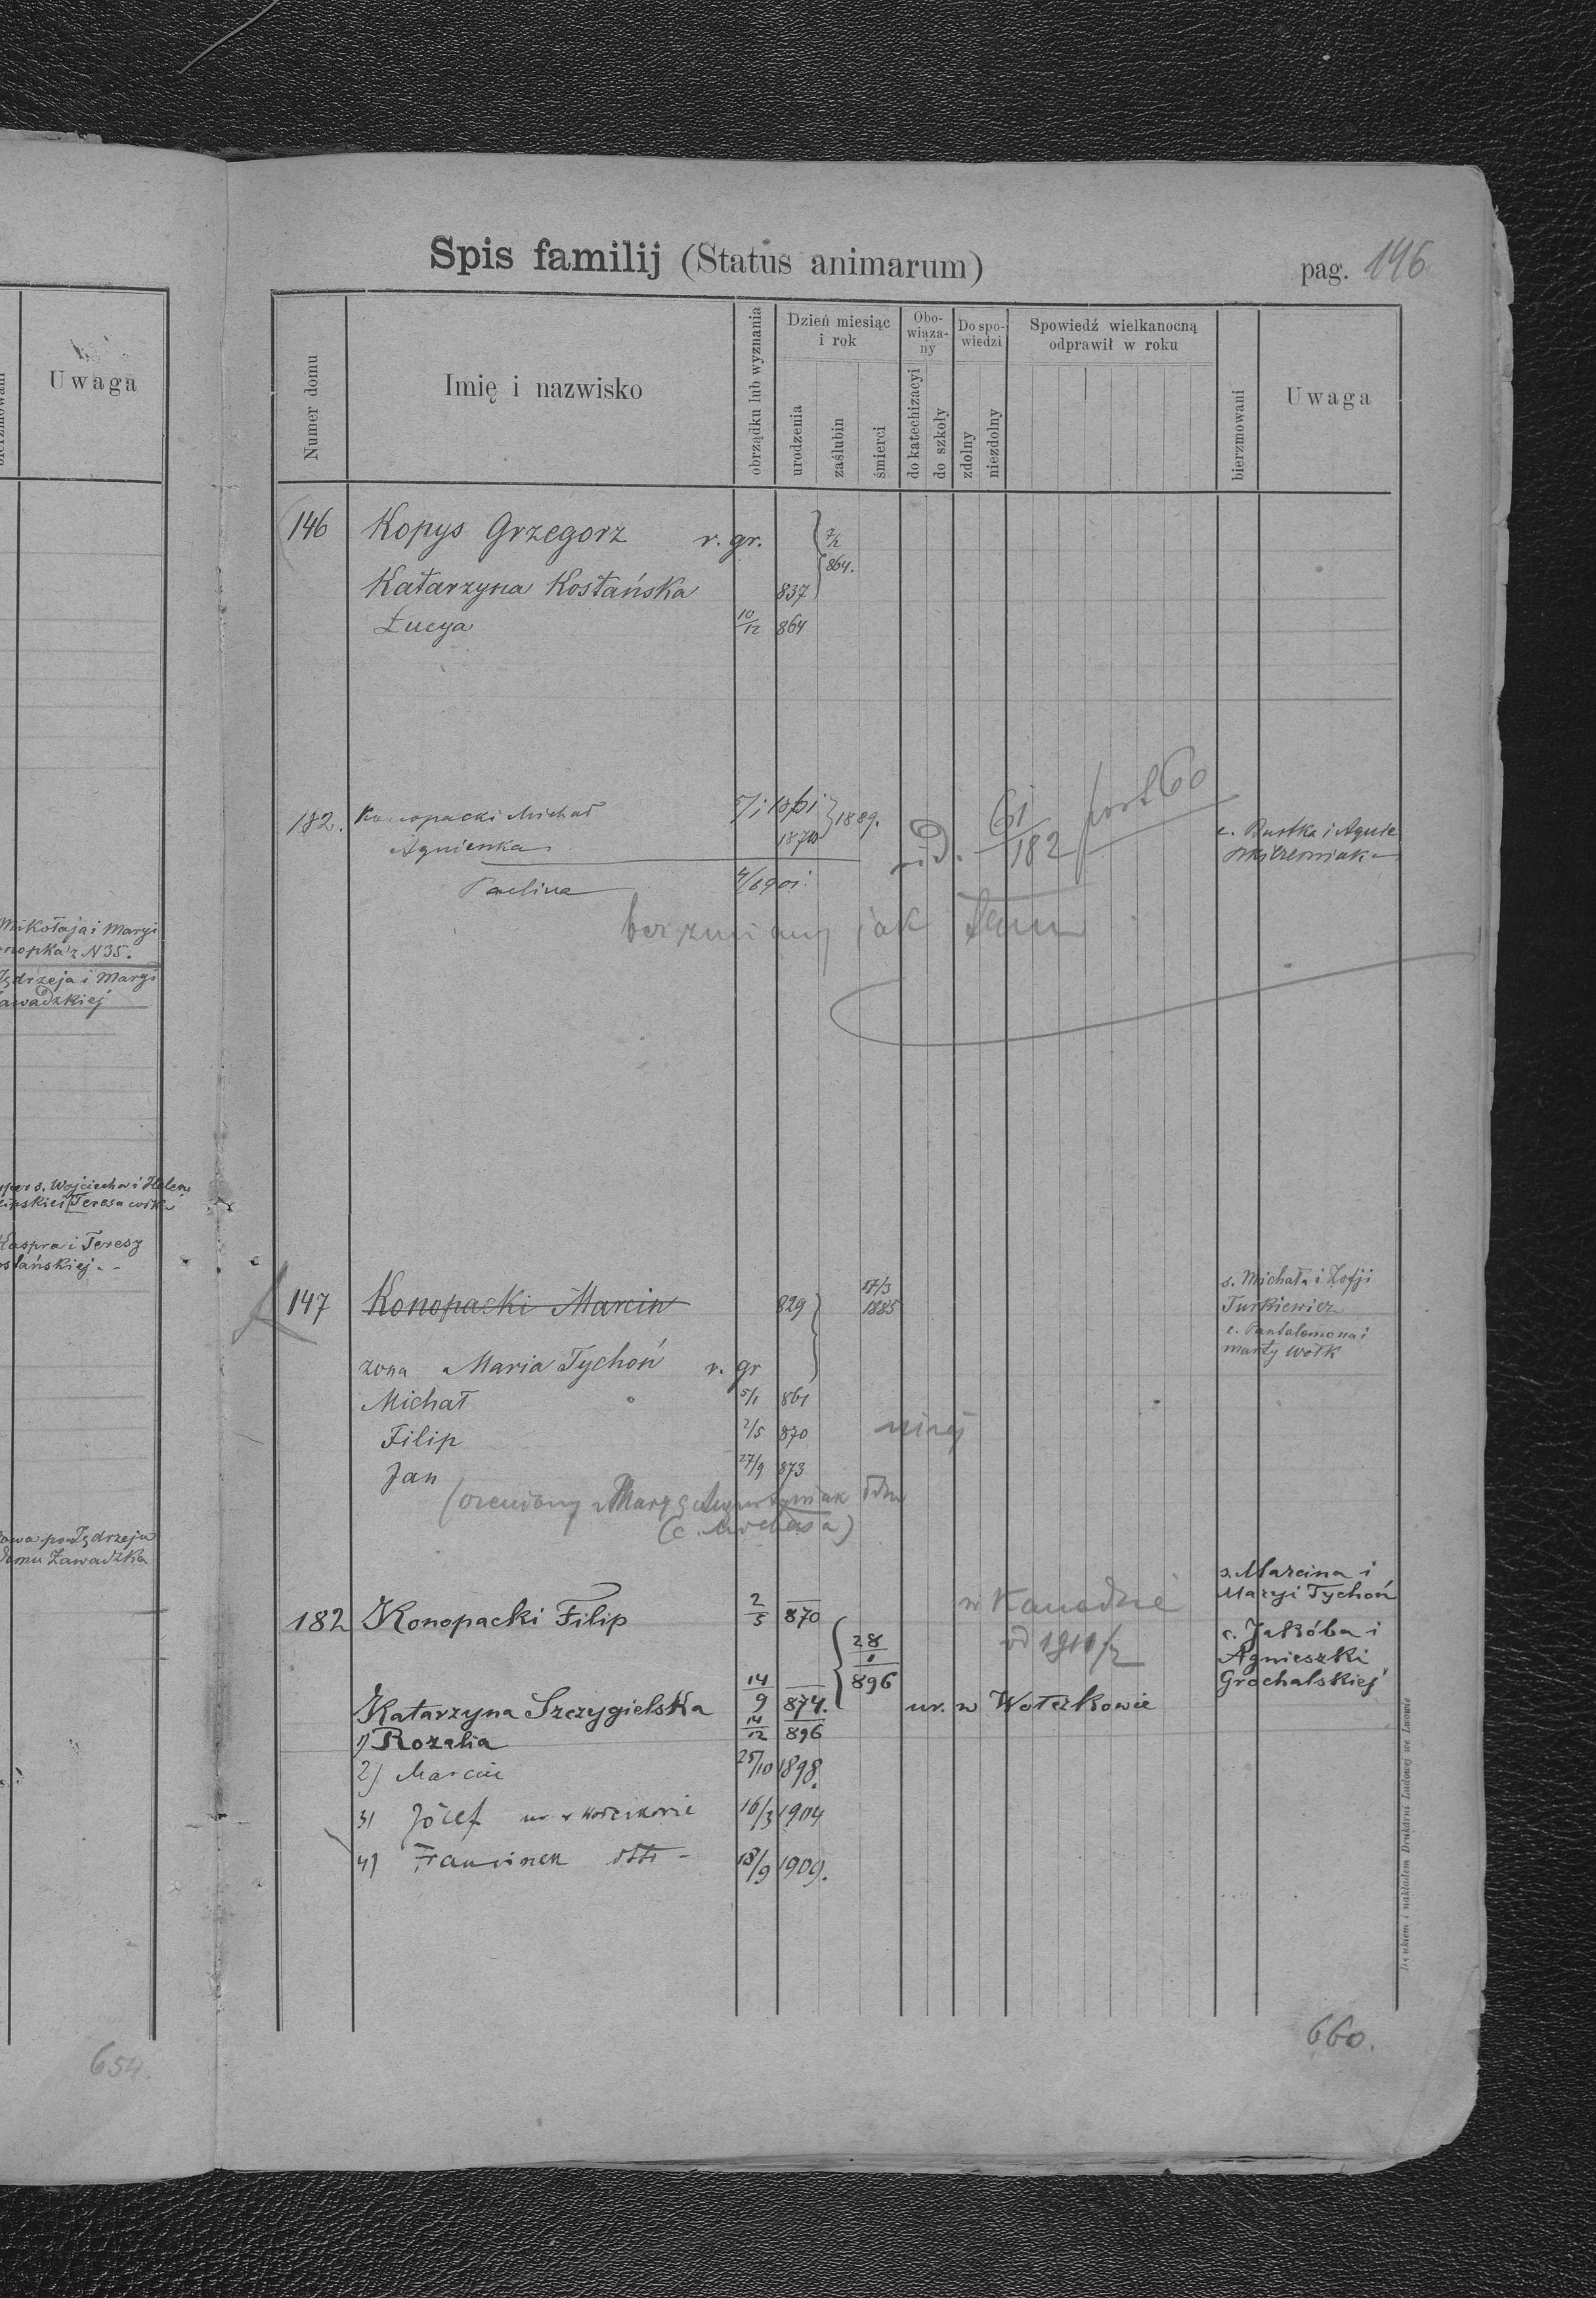 Uwaga
Mikołaja i Maryi
z N 35.
Jędrzeja i Maryi
s. Wojciecha i Helen
Teresa córka
Kaspra i Teresy
po Jędrzeju
domu Zawadzka
654.
Spis familij (Status animarum)
pag. 146
Numer domu
Imię i nazwisko
obrządku lub wyznania
Dzień miesiąc i rok
urodzenia
zaślubin
śmierci
Obowiązany
do katechizacyi
do szkoły
Do spowiedzi
zdolny
niezdolny
Spowiedź wielkanocną odprawił w roku
bierzmowani
Uwaga
146 Kopys Grzegorz r. gr. 7/2 864.
Katarzyna Kostańska 837
Łucya 10/12 864
182. Konopacki Michał 5/1 1861 1889.
Agnieszka 1870 vid. 61/182 post 60 c. Bartka i Agnie
Paulina 4/6 901.
bez zmiany jak tam
147 Konopacki Marcin 829 17/3 1885 s. Michała i Zofji
Turkiewicz
żona Maria Tychoń r. gr c. Pantalemona i
marty Wołk
Michał 5/1 861
Filip 2/5 870 niżej
Jan 27/9 873
(ożeniony z Maryą
182 Konopacki Filip 2/5 870 28/1 896 w Kanadzie
od 1910 r s. Marcina i
Maryi Tychoń
c. Jakóba i
Agnieszki
Grochalskiej
Katarzyna Szczygielska 14/9 874. ur. w Wołczkowie
1) Rozalia 14/12 896
2) Marcin 25/10 1898.
3) Józef ur w Wołczkowie 16/3 1904
4) Franciszek dtto - 18/9 1909.
Drukiem i nakładem Drukarni Ludowej we Lwowie
660.